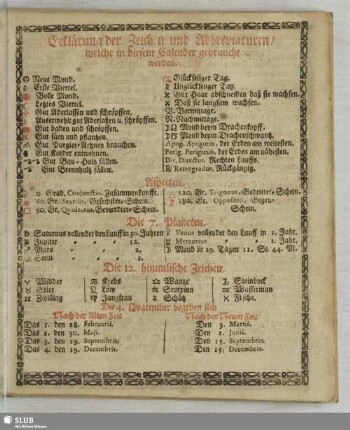 Erklärung der Zeichen und Abbreviaturen/
welche in diesem Calender gebraucht
werden.
Neue Mond.
Erste Viertel.
Volle Mond.
Letztes Viertel.
Gut Aderlassen und schröpffen.
Gut säen und pflantzen.
Gut Kinder entwehnen.
Gut Bau-Holtz fällen.
Gut Brennholtz fällen.
Glückseliger Tag.
Unglückseliger Tag.
Gut Haar abschneiden daß sie wachsen.
Daß sie langsam wachsen.
V. Vormittage.
N. Nachmittage.
Mond beym Drachenkopff.
Mond beym Drachenschwantz.
Apog. Apogæum, der Erden am weitesten.
Perig. Perigæum, der Erden am nähesten.
Dir. Directus, Rechten Lauffs.
Retrogradus, Rückgängig.
Aspecten.
0. Grad. Conjunctio, Zusammenkunfft.
60. Gr. Sextilis, Gesechster-Schein.
90. Gr. Quadratus, Gevierdter-Schein.
120. Gr. Trigonus, Gedritter-Schein.
180. Gr. Oppositio, Gegen-
Schein.
Die 7. Planeten.
♄ Saturnus vollendet den Lauff in 30. Jahren
♃ Jupiter 12.
♂ Mars 2.
☉ Sonn 1.
♀ Venus vollendet den Lauff in 1. Jahr.
☿ Mercurius 1. Jahr.
☽ Mond in 29. Tagen 12. St. 44. M.
Die 12. himmlische Zeichen.
♈ Widder ♋ Krebs ♎ Waage ♑ Steinbock
♉ Stier ♌ Löw ♏ Scorpion ♒ Wasserman
♊ Zwilling ♍ Jungfrau ♐ Schütz ♓ Fische.
Die 4. Quatember begeben sich
Nach der Alten Zeit
Das 1. den 28. Februarii.
Das 2. den 30. Maji.
Das 3. den 19. Septembris.
Das 4. den 19. Decembris.
Nach der Neuen Zeit
Den 3. Martii.
Den 2. Junii.
Den 15. Septembris.
Den 15. Decembris.
SLUB
Wir führen Wissen.